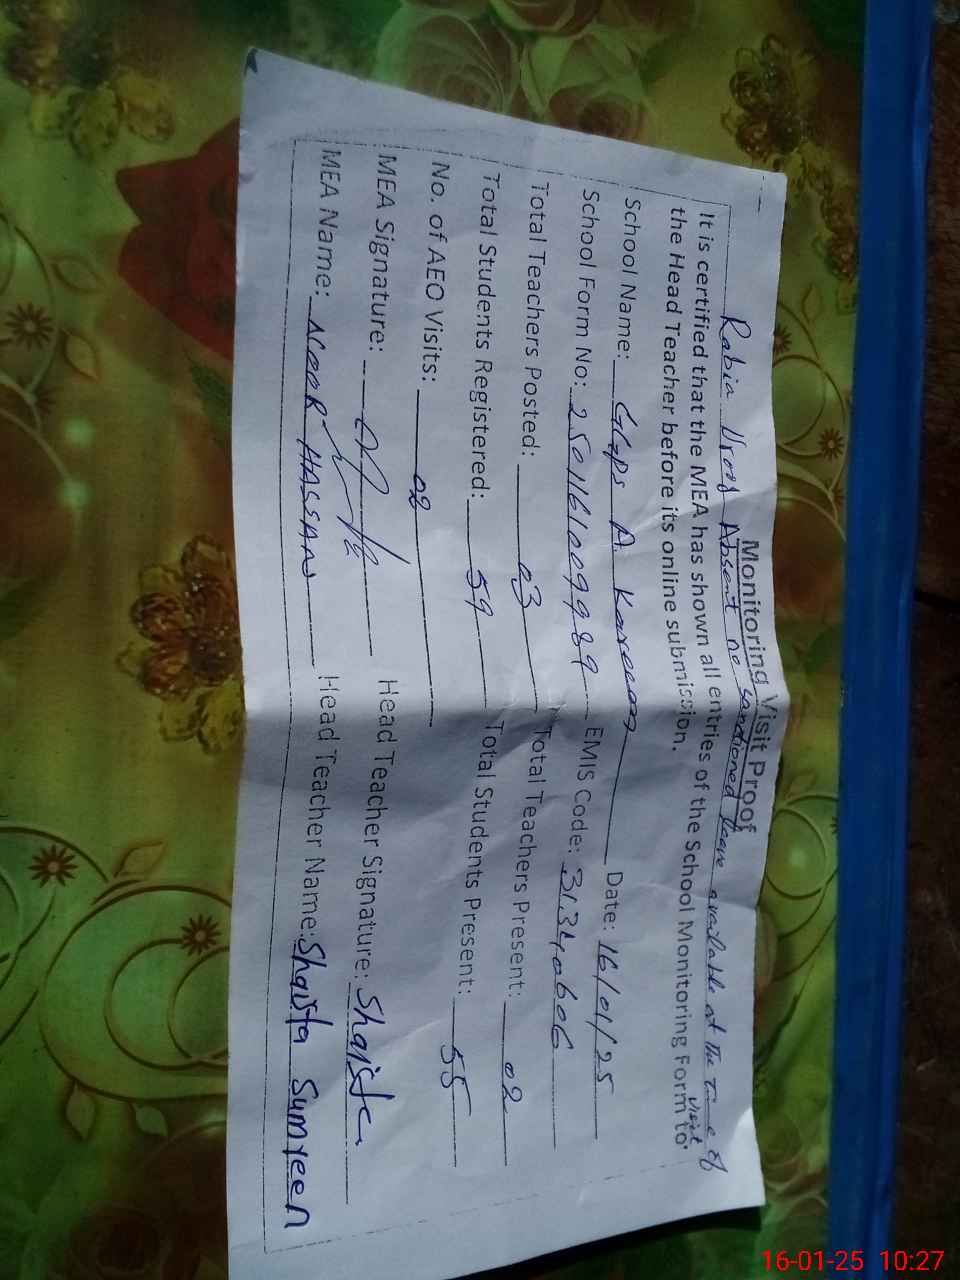 Monitoring Visit Proof
Rabia Absent no sanctioned leave available at the Time of visit
It is certified that the MEA has shown all entries of the School Monitoring Form to
the Head Teacher before its online submission.
School Name: GGPS A. Kareem Date: 16/01/25
School Form No: 2501161009989 EMIS Code: 31340606
Total Teachers Posted: 03 Total Teachers Present: 02
Total Students Registered: 59 Total Students Present: 55
No. of AEO Visits: 02
MEA Signature: Head Teacher Signature: Shaista
MEA Name: HASSAN Head Teacher Name: Shaista Sumreen
16-01-25 10:27